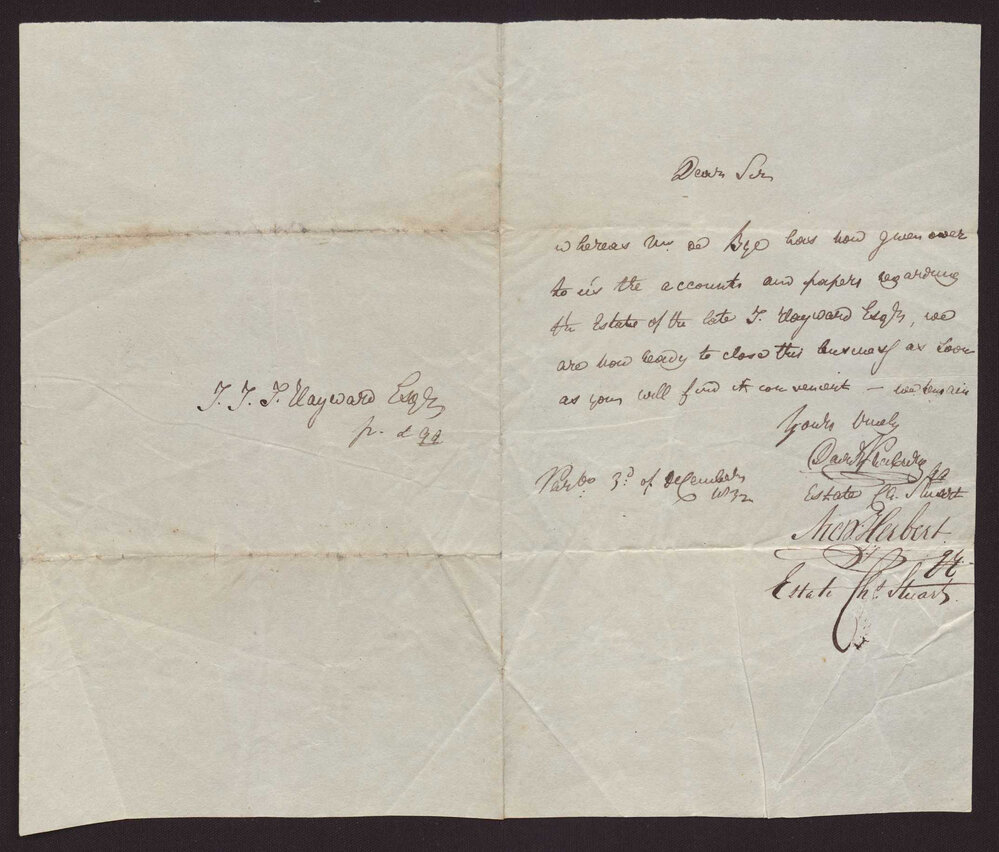 T. T. T. Hayward Esqr
p. d qq
Dear Sir
whereas Mr. de Bye has now given over
to us the accounts and papers regarding
the Estate of the late T. Hayward Esqr, we
are now ready to close this business as soon
as you will find it convenient – we remain
Yours truly
qq
Estate Ch. Stuart
Parbo 3d of December
1832
Alexr. Herbert
qq
Estate Chs. Stuart